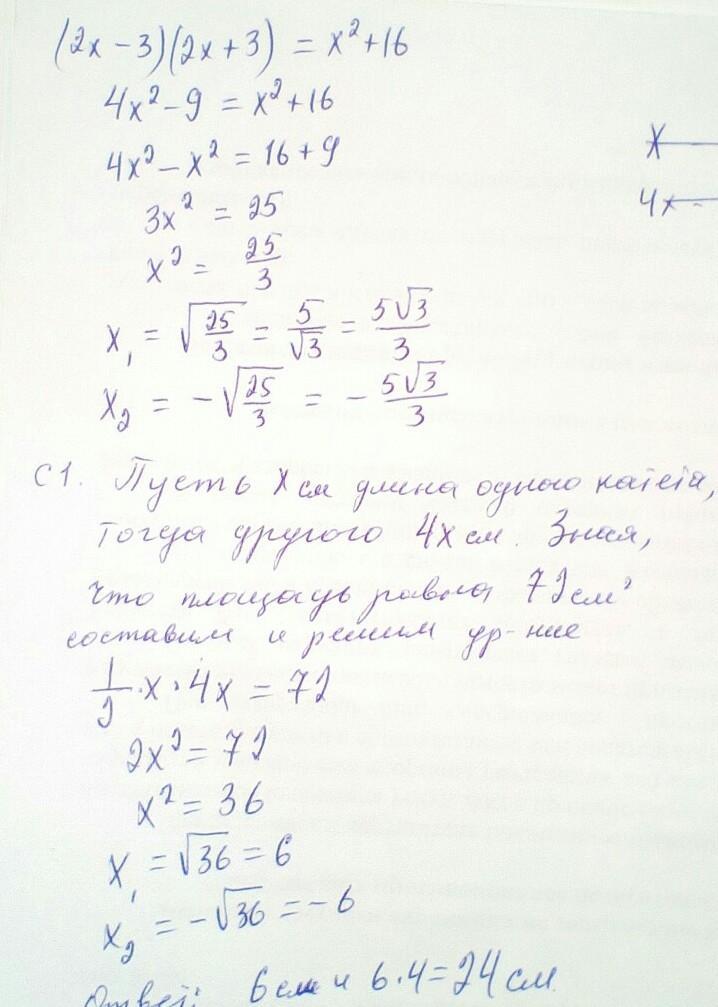 (2x − 3)(2x + 3) = x² + 16
4x² − 9 = x² + 16
4x² − x² = 16 + 9
x
4x
3x² = 25
x² = 25/3
x₁ = √(25/3) = 5/√3 = 5√3/3
x₂ = −√(25/3) = − 5√3/3
С1. Пусть x см длина одного катета,
тогда другого 4x см. Зная,
что площадь равна 72 см²
составим и решим ур-ние
1/2 · x · 4x = 72
2x² = 72
x² = 36
x₁ = √36 = 6
x₂ = −√36 = −6
Ответ: 6 см и 6·4 = 24 см.